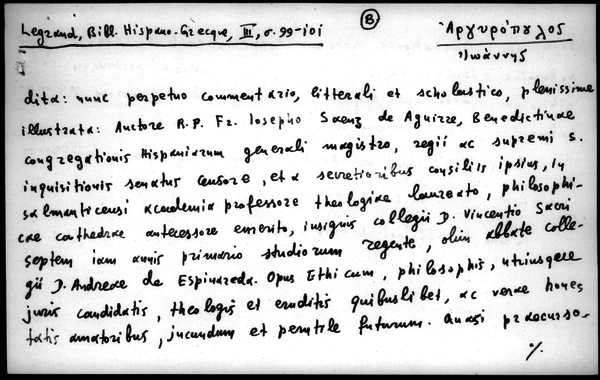 Legrand, Bibl. Hispano-Grecque, III, σ. 99-101
B
Ἀργυρόπουλος
Ἰωάννης
dita: nunc perpetuo commentario, litterali et scholastico, plenissime
illustrata: Auctore R.P. Fr. Iosepho Saenz de Aguirre, Benedictinae
congregationis Hispaniarum generali magistro, regii ac supremi S.
inquisitionis senatus censore, et a secretioribus consiliis ipsius, in
salmanticensi academia professore theologiae laureato, philosophi-
cae cathedrae antecessore emerito, insignis collegii D. Vincentio Sacri
septem iam annis primario studiorum regente, olim abbate colle-
gii D. Andreae de Espinareda. Opus Ethicum, philosophis, utriusque
juris candidatis, theologis et eruditis quibuslibet, ac verae hones
tatis amatoribus, jucundum et perutile futurum. Quasi praecurso-
%.